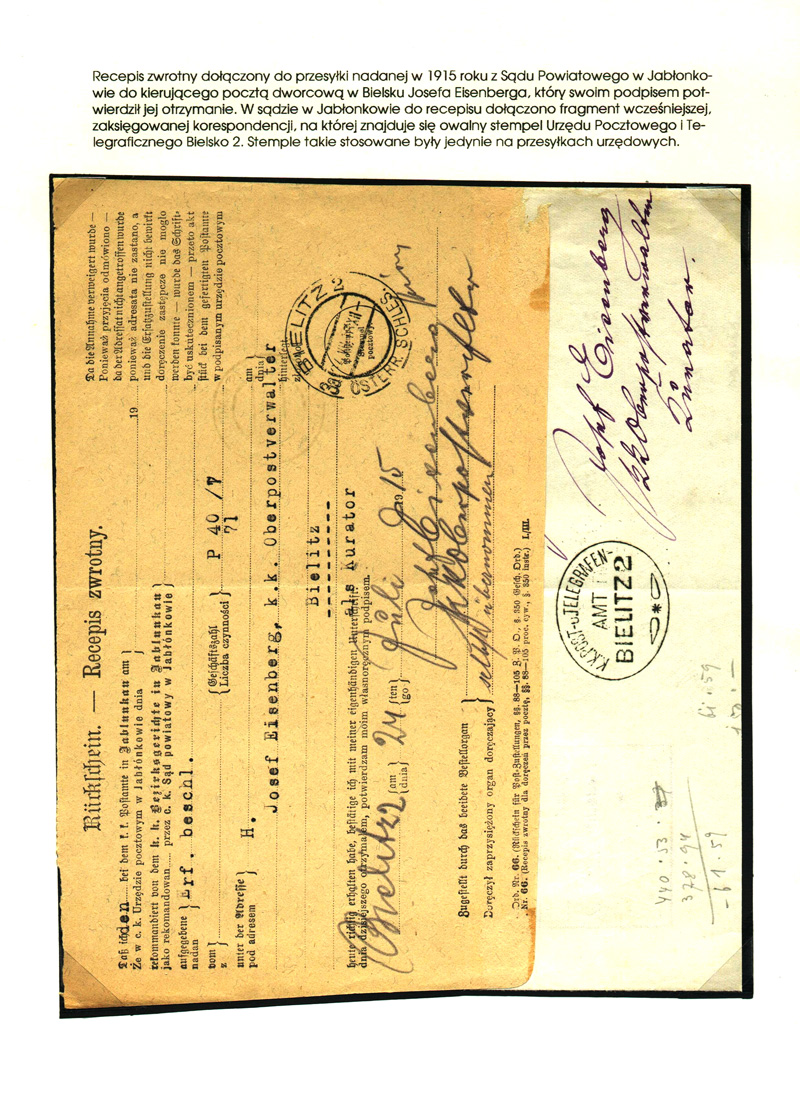 Recepis zwrotny dołączony do przesyłki nadanej w 1915 roku z Sądu Powiatowego w Jabłonko-
wie do kierującego pocztą dworcową w Bielsku Josefa Eisenberga, który swoim podpisem pot-
wierdził jej otrzymanie. W sądzie w Jabłonkowie do recepisu dołączono fragment wcześniejszej,
zaksięgowanej korespondencji, na której znajduje się owalny stempel Urzędu Pocztowego i Te-
legraficznego Bielsko 2. Stemple takie stosowane były jedynie na przesyłkach urzędowych.
Rückschein. — Recepis zwrotny.
Daß ich den bei dem k. k. Postamte in Jablunkau am
Że w c. k. Urzędzie pocztowym w Jabłónkowie dnia 19
rekommandiert von dem k. k. Bezirksgerichte in Jablunkau
jako rekomandowan przez c. k. Sąd powiatowy w Jabłónkowie
aufgegebene Erf. beschl.
nadan
vom Geschäftszahl P 40/7
z Liczba czynności 71
unter der Adresse H.
pod adresem
Josef Eisenberg, k.k. Oberpostverwalter
Bielitz
als Kurator
heute richtig erhalten habe, bestätige ich mit meiner eigenhändigen Unterschrift.
dnia dzisiejszego otrzymałem, potwierdzam moim własnoręcznym podpisem.
Bielitz 2 am dnia 24 ten go Juli 1915
Josef Eisenberg
kk Oberpostverwalter
Zugestellt durch das beeidete Bestellorgan
Doręczył zaprzysiężony organ doręczający
selbst übernommen
Ord. Nr. 66. (Rückschein für Post-Zustellungen, §§. 88—105 Z. P. O., §. 350 Gesch. Ord.)
Nr. 66. (Recepis zwrotny dla doręczeń przez pocztę, §§. 88—105 proc. cyw., §. 350 instr.) L/III.
Da die Annahme verweigert wurde —
Ponieważ przyjęcia odmówiono —
da der Adressat nicht angetroffen wurde
ponieważ adresata nie zastano, a
und die Ersatzzustellung nicht bewirkt
doręczenie zastępcze nie mogło
werden konnte — wurde das Schrift-
być uskutecznionem — przeto akt
stück bei dem gefertigten Postamte
w podpisanym urzędzie pocztowym
am
dnia
hinterlegt
BIELITZ 2
ÖSTERR. SCHLES.
pocztowy
K.K. POST-u. TELEGRAFEN-
AMT
BIELITZ 2
Josef Eisenberg
kk Oberpostverwalter
Kurator.
440·53
378·94
61·59
61·59